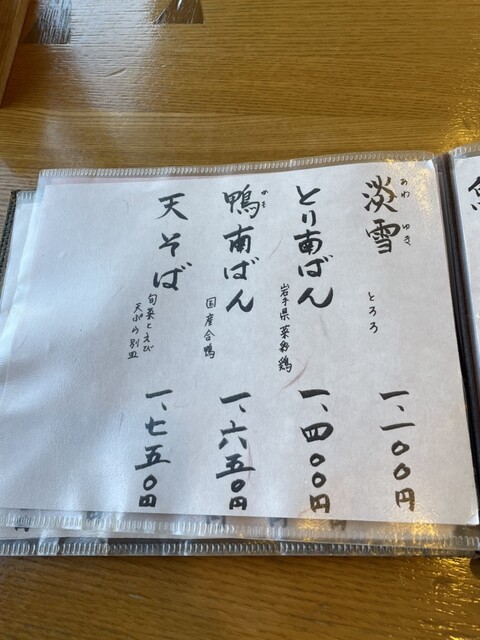 淡雪
あわ ゆき
とろろ
一、一〇〇円
とり南ばん
岩手県菜彩鶏
一、四〇〇円
鴨南ばん
かも
国産合鴨
一、六五〇円
天そば
旬菜とえび
天ぷら別皿
一、七五〇円